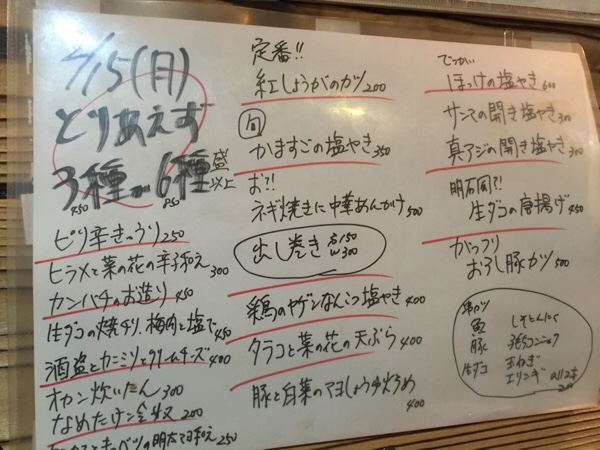 4/15(月)
とりあえず
3種か6種盛
以上
850
ピリ辛きゅうり 250
ヒラメと菜の花の辛子和え 300
カンパチのお造り 450
生ダコの焼チリ、梅肉と塩で 450
酒盗とカニミソとクリームチーズ 400
オカン炊いたん 300
なめたけ 200
キャベツの明太マヨ和え 250
定番!!
紅しょうがのカツ 200
旬
かますごの塩やき 350
お?!
ネギ焼きに中華あんかけ 500
出し巻き S/150
W300
鶏のヤゲンなんこつ塩やき 400
タラコと菜の花の天ぷら 400
豚と白菜のマヨしょうゆ炒め
400
でっかい
ほっけの塩やき 600
サンマの開き塩やき 300
真アジの開き塩やき 300
明石同?!
生ダコの唐揚げ 450
がっつり
おろし豚カツ 500
串カツ
魚 しそとんにく
豚 糸コンニャク
生ダコ 玉ねぎ
エリンギ all 2本
200